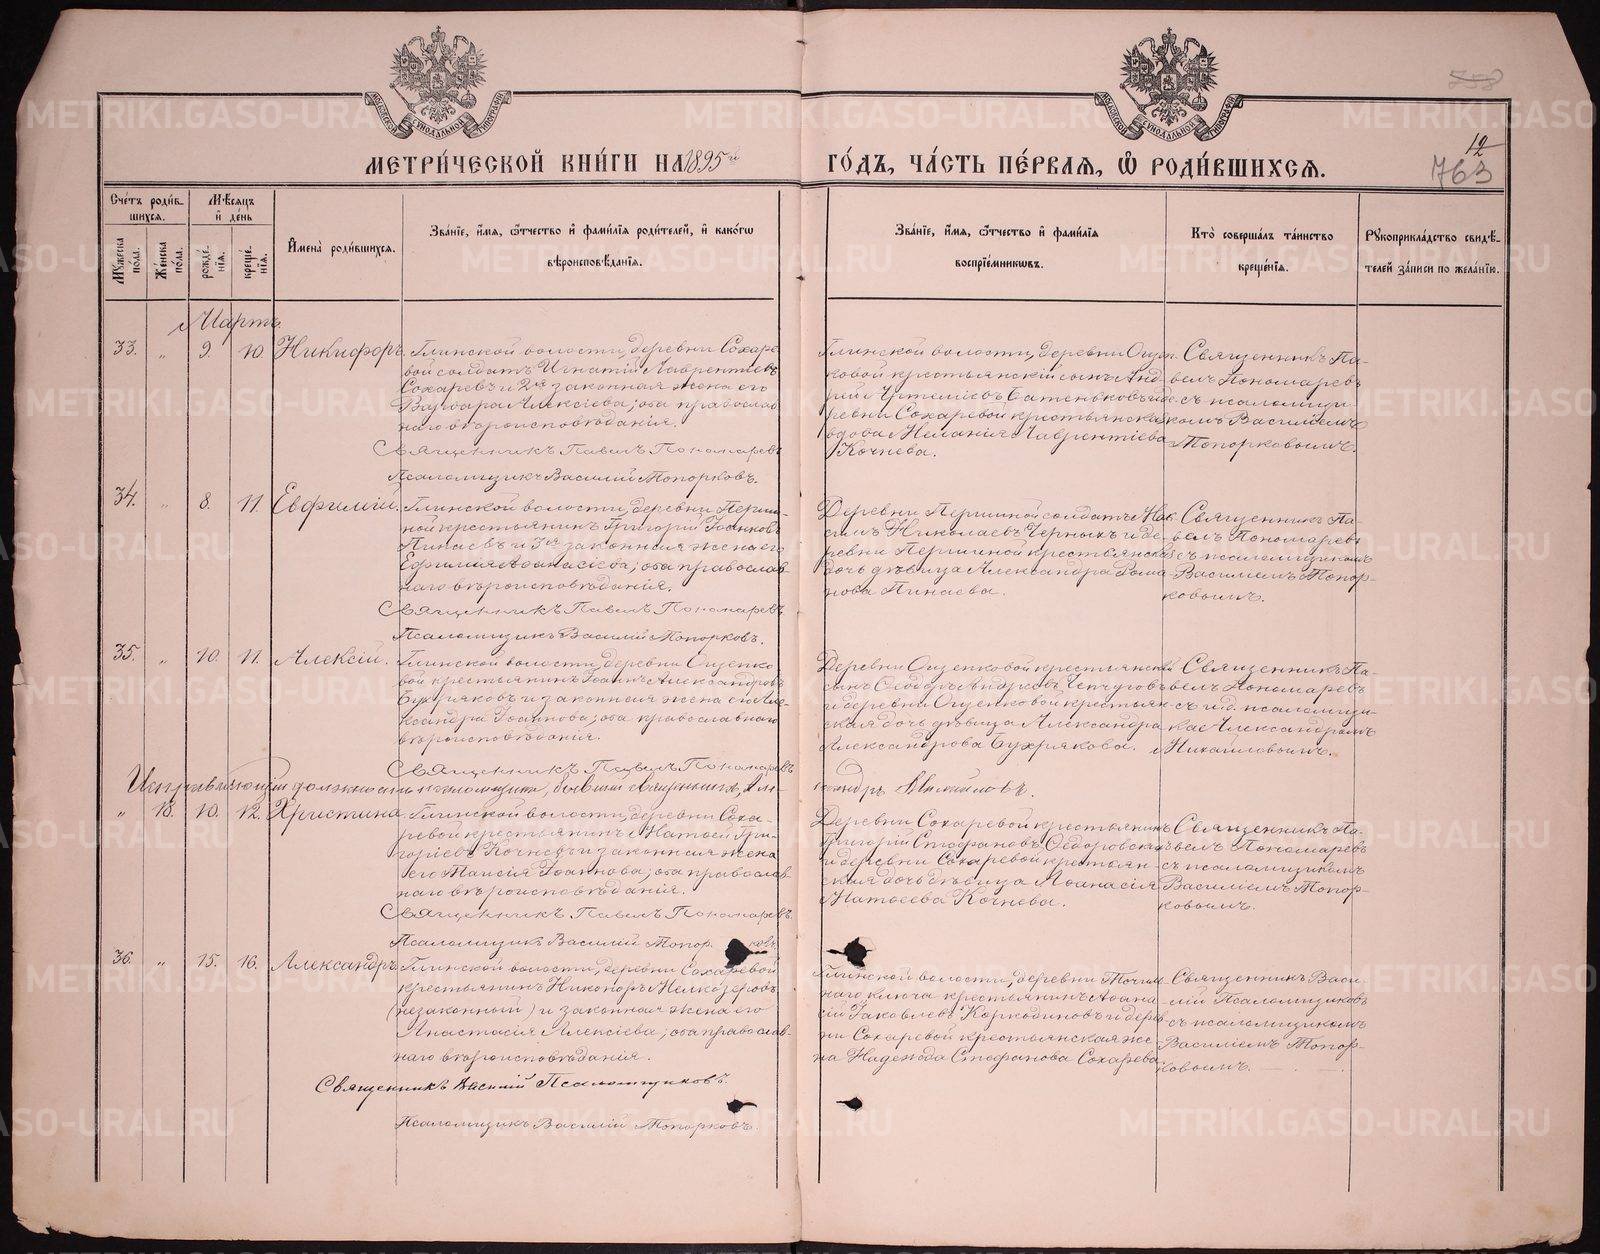 МЕТРИ́ЧЕСКОЙ КНИ́ГИ НА 1895й ГО́ДЪ, ЧА́СТЬ ПЕ́РВАЯ, Ѿ РОДИ́ВШИХСЯ.
758
12
763
МОСКОВСКОЙ СѴНОДАЛЬНОЙ ТИПОГРАФІИ
МОСКОВСКОЙ СѴНОДАЛЬНОЙ ТИПОГРАФІИ
Сче́тъ роди́вшихся.
Мꙋ́жеска по́ла.
Же́нска по́ла.
Мѣ́сяцъ и де́нь
рожде́нїя.
креще́нїя.
Имена̀ роди́вшихся.
Зва́нїе, и́мя, ѻ҆́тчество и҆ фами́лїя роди́телей, и҆ како́гѡ
вѣроисповѣ́данїя.
Зва́нїе, и́мя, ѻ҆́тчество и҆ фами́лїя
воспрїе́мникѡвъ.
Кто̀ соверша́лъ та́инство
креще́нїя.
Рꙋкоприкла́дство свидѣ́-
телей за́писи по жела́нїю.
Мартъ.
33. „ 9. 10. Никифоръ.
Глинской волости, деревни Сохаре-
вой солдатъ Игнатій Лаврентіевъ
Сохаревъ и 2ая законная жена его
Варвара Алексіева; оба православ-
наго вѣроисповѣданія.
Священникъ Павелъ Пономаревъ
Псаломщикъ Василій Топорковъ.
Глинской волости, деревни Ощеп-
ковой крестьянскій сынъ Анд-
рей Артеміевъ Батеньковъ и де-
ревни Сохаревой крестьянская
вдова Меланія Лаврентіева
Кочнева.
Священникъ Па-
велъ Пономаревъ
съ псаломщи-
комъ Василіемъ
Топорковымъ.
34. „ 8. 11. Евфимій.
Глинской волости, деревни Перши-
ной крестьянинъ Григорій Іоанновъ
Пинаевъ и 3ья законная жена его
Ефимія Аѳанасіева; оба православ-
наго вѣроисповѣданія.
Священникъ Павелъ Пономаревъ.
Псаломщикъ Василій Топорковъ.
Деревни Першиной солдатъ Мак-
симъ Николаевъ Черныхъ и де-
ревни Першиной крестьянская
дочь дѣвица Александра Рома-
нова Пинаева.
Священникъ Па-
велъ Пономаревъ
съ псаломщикомъ
Василіемъ Топор-
ковымъ.
35. „ 10. 11. Алексій.
Глинской волости, деревни Ощепко-
вой крестьянинъ Іоаннъ Александровъ
Бухряковъ и законная жена его Але-
ксандра Іоаннова; оба православнаго
вѣроисповѣданія.
Священникъ Павелъ Пономаревъ
Исправляющій должность псаломщика, бывшій священникъ, Алек-
сандръ Михайловъ.
Деревни Ощепковой крестьянскій
сынъ Ѳеодоръ Чепчуговъ
и деревни Ощепковой крестьян-
ская дочь дѣвица Александра
Александрова Бухрякова.
Священникъ Па-
велъ Пономаревъ
съ и.д. псаломщи-
ка Александромъ
Михайловымъ.
„ 18. 10. 12. Христина
Глинской волости, деревни Соха-
ревой крестьянинъ Матѳей Гри-
горіевъ Кочневъ и законная жена
его Таисія Іоаннова; оба православ-
наго вѣроисповѣданія.
Священникъ Павелъ Пономаревъ.
Псаломщикъ Василій Топорковъ.
Деревни Сохаревой крестьянинъ
Григорій Стефановъ Ѳедоровскихъ
и деревни Сохаревой крестьян-
ская дочь дѣвица Аѳанасія
Матѳеева Кочнева.
Священникъ Па-
велъ Пономаревъ
съ псаломщикомъ
Василіемъ Топор-
ковымъ.
36. „ 15. 16. Александръ.
Глинской волости, деревни Сохаревой
крестьянинъ Никоноръ Мелкозеровъ
(незаконный) и законная жена его
Анастасія Алексіева; оба православ-
наго вѣроисповѣданія.
Священникъ Василій Псаломщиковъ.
Псаломщикъ Василій Топорковъ.
Глинской волости, деревни Точиль-
наго ключа крестьянинъ Аѳана-
сій Іаковлевъ Коркодиновъ и дерев-
ни Сохаревой крестьянская же-
на Надежда Стефанова Сохарева
Священникъ Васи-
лій Псаломщиковъ
съ псаломщикомъ
Василіемъ Топор-
ковымъ.
METRIKI.GASO-URAL.RU